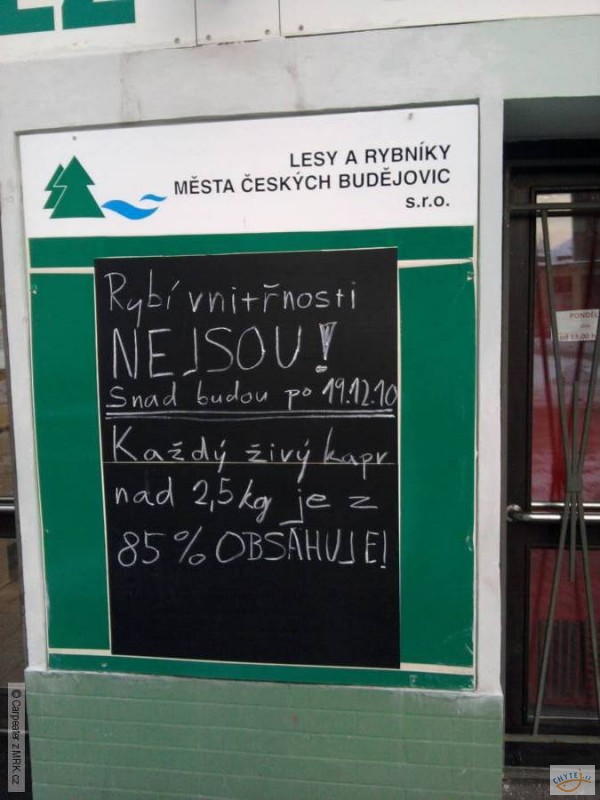 LESY A RYBNÍKY
MĚSTA ČESKÝCH BUDĚJOVIC
s.r.o.
Rybí vnitřnosti
NEJSOU!
Snad budou po 19.12.10
Každý živý kapr
nad 2,5kg je z
85% OBSAHUJE!
PONDĚL
© Carpenter z MRK.cz
CHYTEJ.cz